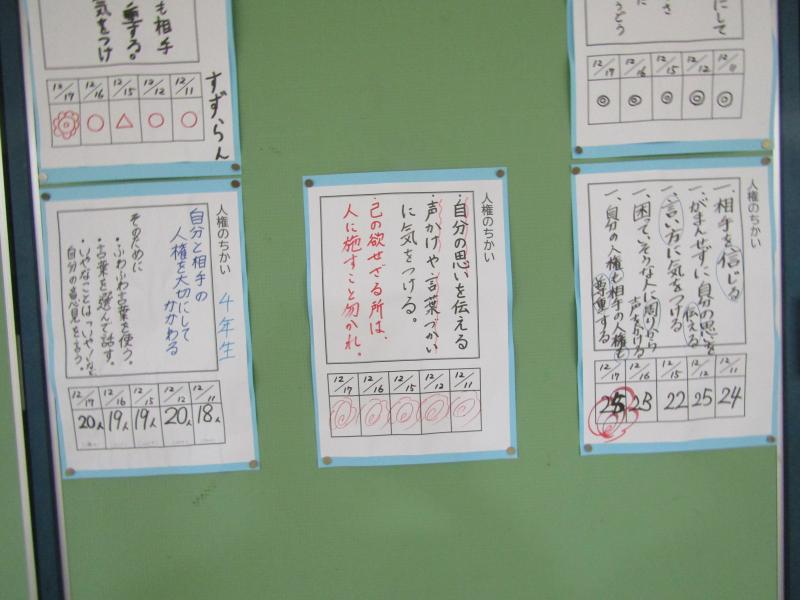 も相手
重する。
気をつけ
12/17 12/16 12/15 12/12 12/11
すずらん
にして
12/17 12/16 12/15 12/12
人権のちかい
4年生
自分と相手の
人権を大切にして
かかわる
そのために
・ふわふわ言葉を使う。
・言葉を選んで話す。
・いやなことはっいや!など
自分の意見を言う。
12/17 12/16 12/15 12/12 12/11
20人 19人 19人 20人 18人
人権のちかい
・自分の思いを伝える
・声かけや言葉づかい
に気をつける。
・己の欲せざる所は、
人に施すこと勿かれ。
12/17 12/16 12/15 12/12 12/11
人権のちかい
一、相手を信じる
一、がまんせずに自分の思いを
伝える
一、言い方に気をつける
一、困っていそうな人に周りから
声をかける
一、自分の人権も相手の人権も
尊重する
12/17 12/16 12/15 12/12 12/11
25 23 22 25 24